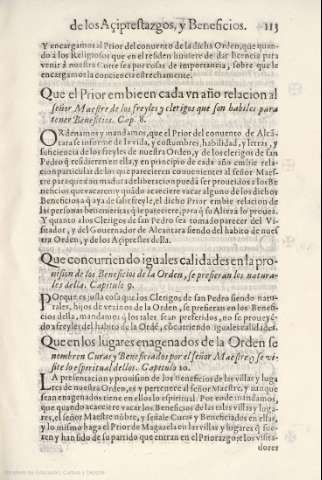 de los Açiprestazgos, y Beneficios. 113
Y encargamos al Prior del conuento de la dicha Orden, que quan-
do à los Religiosos que en el residen huuiere de dar licencia para
venir à nuestra Corte sea por cosas de importancia, sobre que le
encargamos la conciencia estrechamente.
Que el Prior embie en cada vn año relacion al
señor Maestre de los freyles y clerigos que son habiles para
tener Beneficios. Cap. 8.
ORdenamos y mandamos, que el Prior del conuento de Alcã-
tara se informe de la vida, y costumbres, habilidad, y letras, y
suficiencia de los freyles de nuestra Orden, y de los clerigos de san
Pedro q̃ residieren en ella, y en principio de cada año embie rela-
cion particular de los que parecieren conuenientes al señor Maes-
tre para que con madura deliberacion pueda ser proueidos a los Be-
neficios que vacaren y quãdo acaeciere vacar alguno de los dichos
Beneficios a q̃ aya de salir freyle, el dicho Prior embie relacion de
las personas benemeritas, q̃ le parecè, para q̃ su Alteza lo prouea.
Y quanto a los Clerigos de san Pedro sea tomado parecer del Vi-
sitador, y del Gouernador de Alcantara siendo del habito de nues-
tra Orden, y de los Açiprestes della.
Que concurriendo iguales calidades en la pro-
uision de los Beneficios de la Orden, se prefieran los natura-
les della. Capitulo 9.
POrque es justa cosa que los Clerigos de san Pedro siendo natu-
rales, hijos de vezinos de la Orden, se prefieran en los Benefi-
cios della, mandamos q̃ los tales sean preferidos, no se proueyẽ-
do a freyles del habito de la Ordẽ, cõcurriendo iguales calidades.
Que en los lugares enagenados de la Orden se
nombren Curas y Beneficiados por el señor Maestre, y se vi-
site lo espiritual dellos. Capitulo 10.
LA presentacion y prouision de los Beneficios de las villas y luga
res de nuestra Orden, es y pertenece al señor Maestre, y aunque
sean enagenados tiene en ellos lo espiritual. Por ende mandamos,
que quando acaeciere vacar los Beneficios de las tales villas y luga-
res, el señor Maestre nõbre, y señale Curas y Beneficiados en ellas,
y lo mismo haga el Prior de Magazela en las villas y lugares q̃ fue-
ren y han sido de su partido que entran en el Priorazgo y los visita-
dores
Ministerio de Educación, Cultura y Deporte